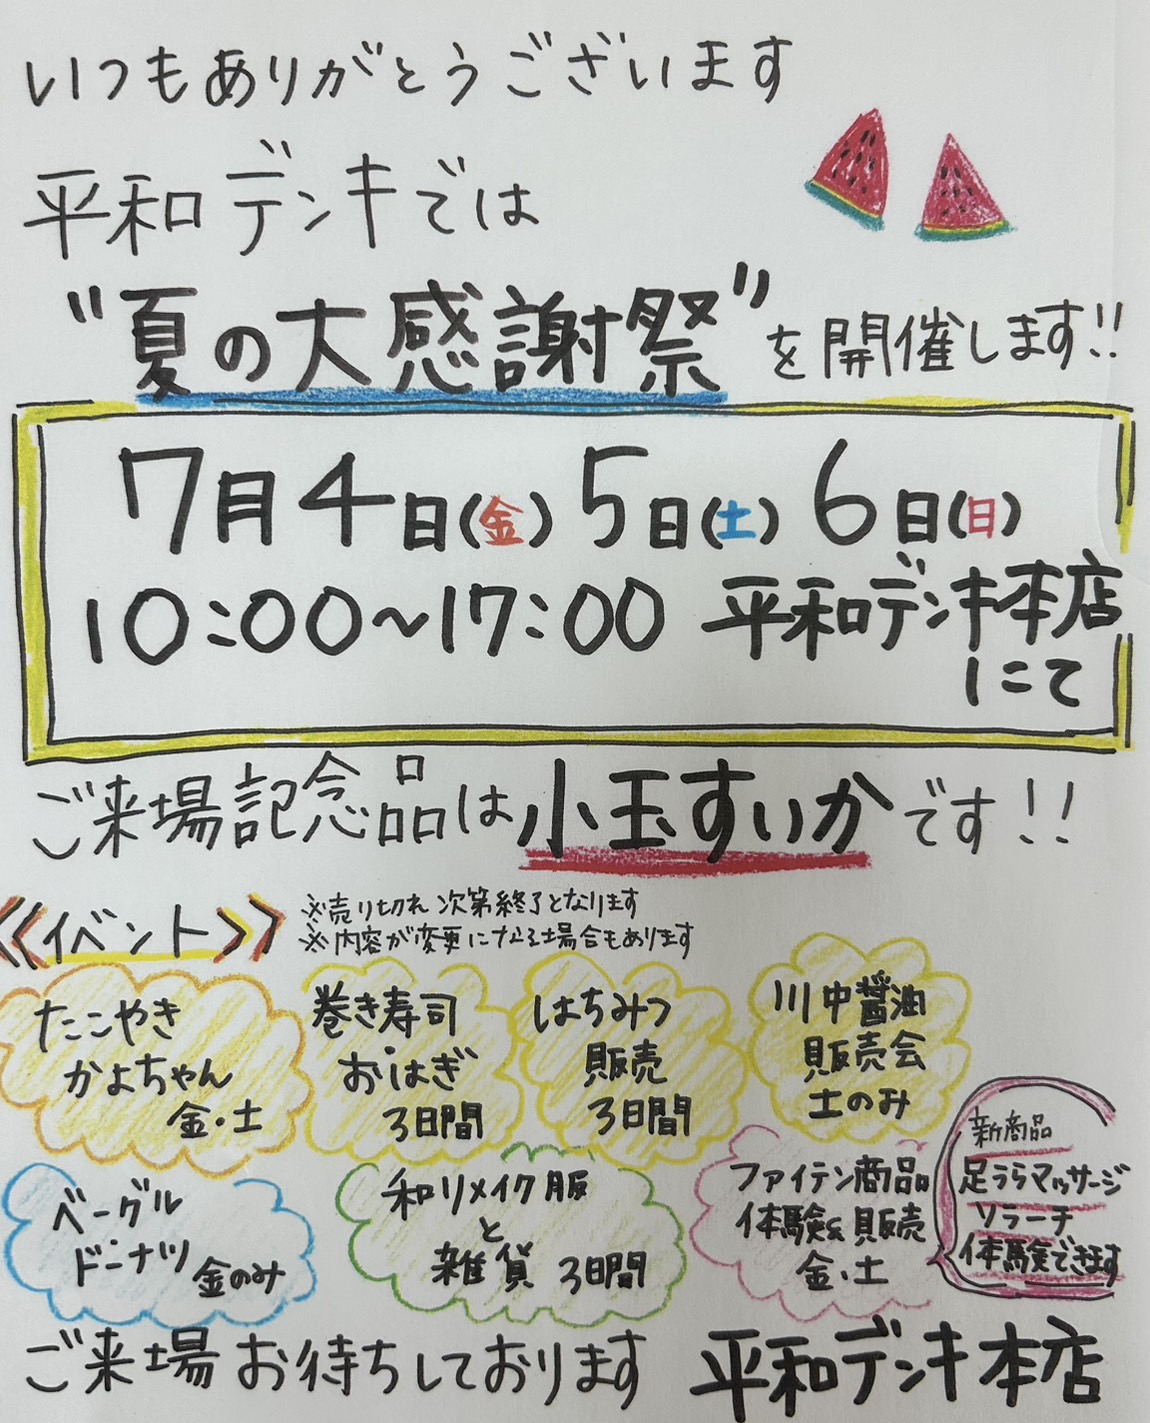 いつもありがとうございます
平和デンキでは
"夏の大感謝祭"を開催します!!
7月4日(金)5日(土)6日(日)
10:00~17:00 平和デンキ本店
にて
ご来場記念品は小玉すいかです!!
《イベント》
※売り切れ次第終了となります
※内容が変更になる場合もあります
たこやき
かよちゃん
金・土
巻き寿司
おはぎ
3日間
はちみつ
販売
3日間
川中醤油
販売会
土のみ
ベーグル
ドーナツ 金のみ
和リメイク服
と
雑貨 3日間
ファイテン商品
体験&販売
金・土
新商品
足うらマッサージ
ソラーチ
体験できます
ご来場お待ちしております 平和デンキ本店